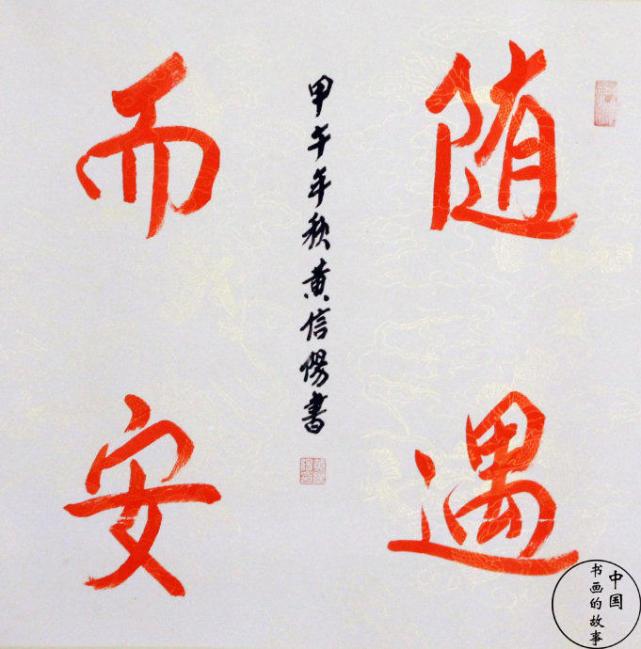 随遇
而安
甲午年秋黄信陽書
中国
书画的故事